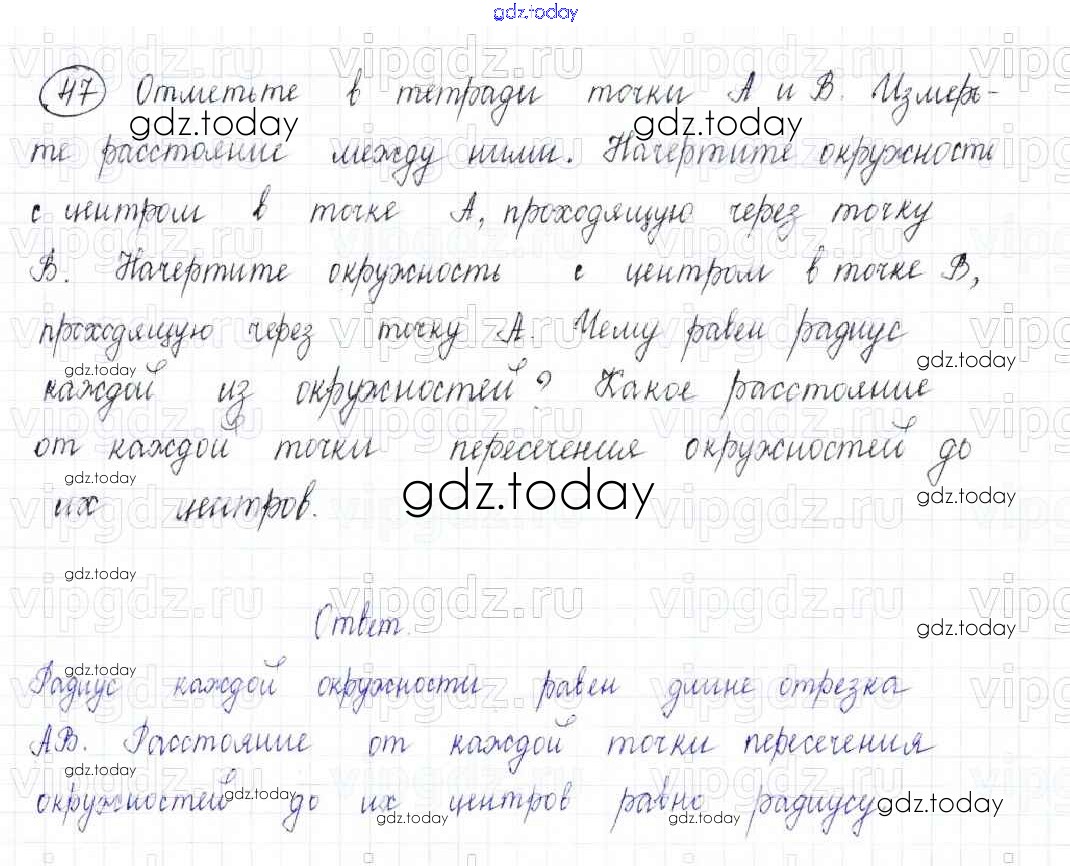 gdz.today
47 Отметьте в тетради точки А и В. Измерь-
gdz.today gdz.today
те расстояние между ними. Начертите окружность
с центром в точке А, проходящую через точку
В. Начертите окружность с центром в точке В,
проходящую через точку А. Чему равен радиус
gdz.today gdz.today
каждой из окружностей? Какое расстояние
от каждой точки пересечения окружностей до
gdz.today gdz.today gdz.today
их центров.
gdz.today
Ответ.
gdz.today
gdz.today
Радиус каждой окружности равен длине отрезка
АВ. Расстояние от каждой точки пересечения
gdz.today
окружностей до их центров равно радиусу
gdz.today gdz.today gdz.today gdz.today
vipgdz.ru vipgdz.ru vipgdz.ru